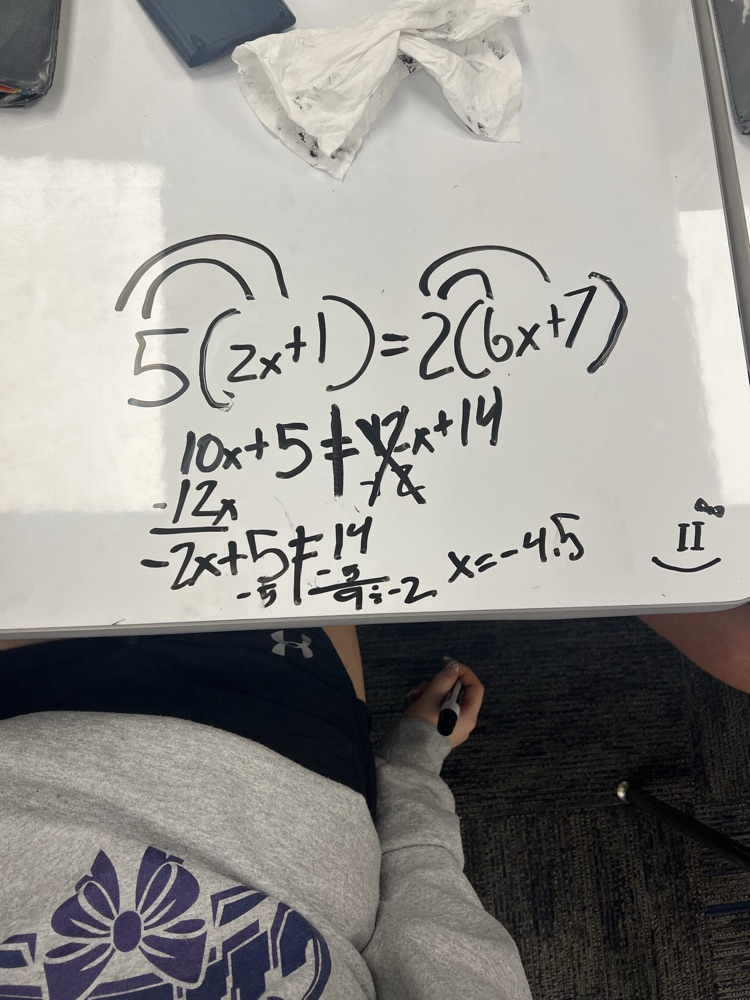 5(2x+1)=2(6x+7)
10x+5=12x+14
-12x -12
-2x+5=14
-5 -5
9÷-2
x=-4.5